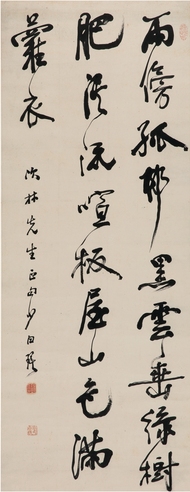 雨傍孤邨黑雲垂綠樹
肥溪流喧板屋山色滿
蘿衣
林先生正